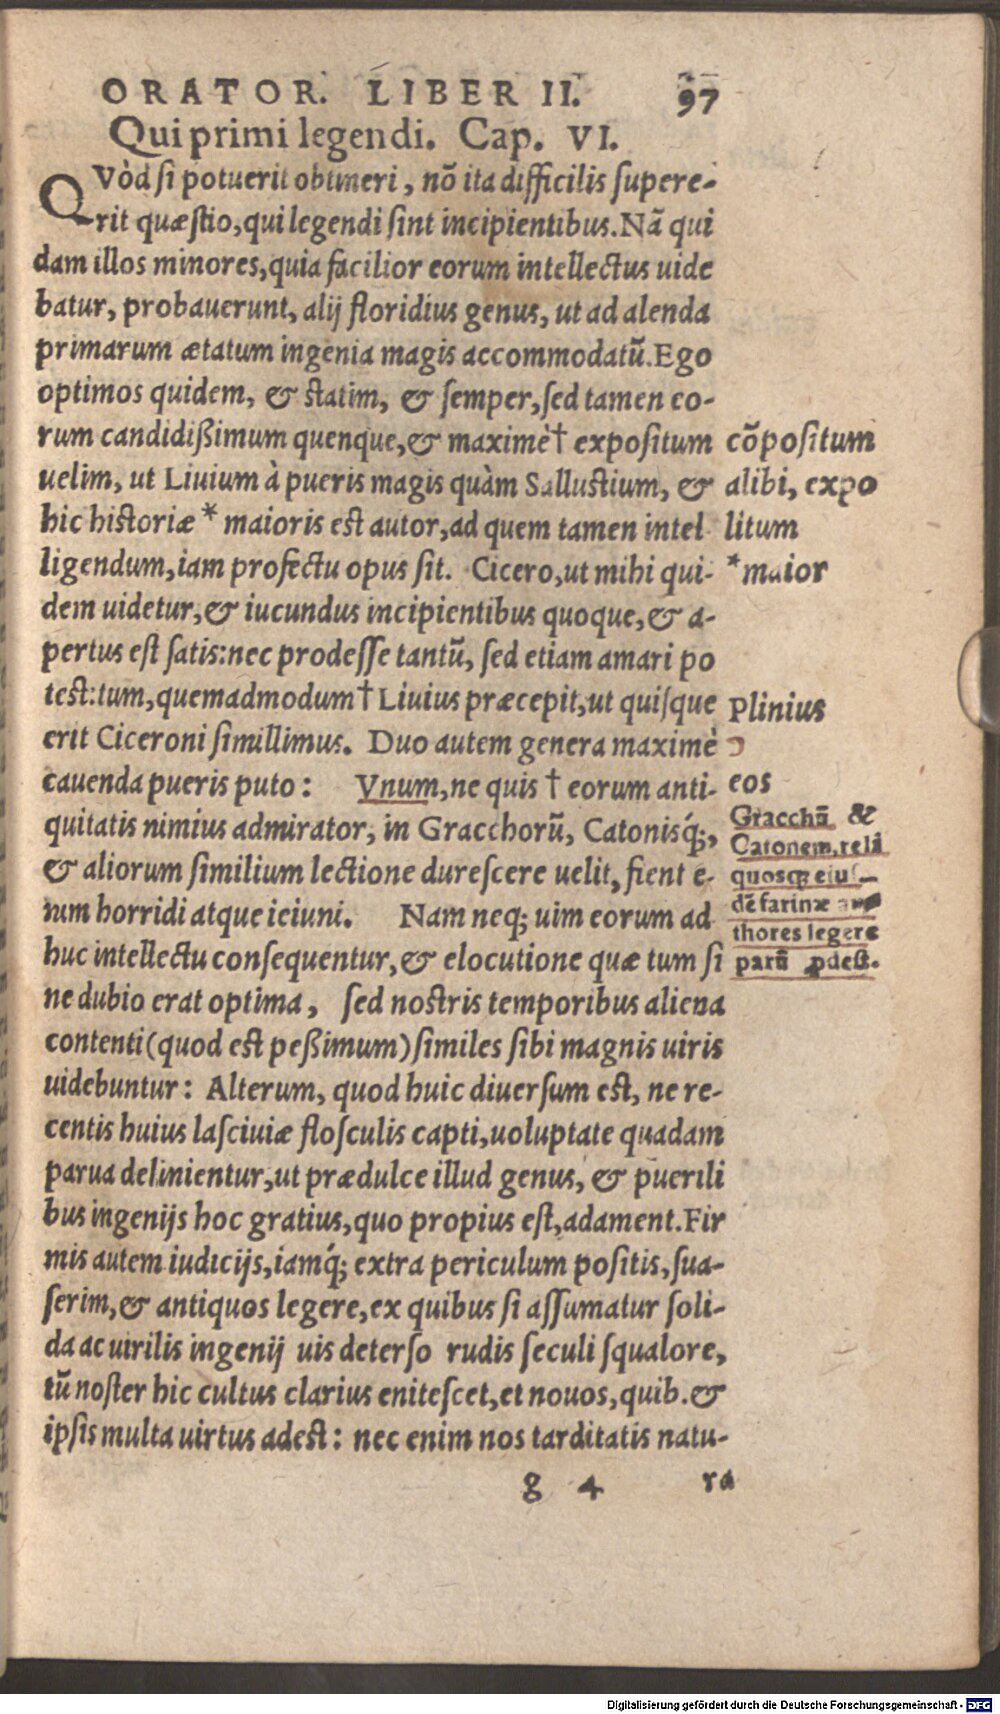 ORATOR. LIBER II. 97
Qui primi legendi. Cap. VI.
QVòd si potuerit obtineri, nõ ita difficilis supere-
rit quæstio, qui legendi sint incipientibus. Nã qui
dam illos minores, quia facilior eorum intellectus uide
batur, probauerunt, alij floridius genus, ut ad alenda
primarum ætatum ingenia magis accommodatũ. Ego
optimos quidem, & statim, & semper, sed tamen eo-
rum candidißimum quenque, & maximè† expositum
uelim, ut Liuium à pueris magis quàm Sallustium, &
hic historiæ * maioris est autor, ad quem tamen intel
ligendum, iam profectu opus sit. Cicero, ut mihi qui-
dem uidetur, & iucundus incipientibus quoque, & a-
pertus est satis: nec prodesse tantũ, sed etiam amari po
test: tum, quemadmodum† Liuius præcepit, ut quisque
erit Ciceroni simillimus. Duo autem genera maximè
cauenda pueris puto: Vnum, ne quis † eorum anti-
quitatis nimius admirator, in Gracchorũ, Catonisq́;,
& aliorum similium lectione durescere uelit, fient e-
nim horridi atque ieiuni. Nam neq; uim eorum ad
huc intellectu consequentur, & elocutione quæ tum si
ne dubio erat optima, sed nostris temporibus aliena
contenti (quod est peßimum) similes sibi magnis uiris
uidebuntur: Alterum, quod huic diuersum est, ne re-
centis huius lasciuiæ flosculis capti, uoluptate quadam
parua delinientur, ut prædulce illud genus, & puerili
bus ingenijs hoc gratius, quo propius est, adament. Fir
mis autem iudicijs, iamq́; extra periculum positis, sua-
serim, & antiquos legere, ex quibus si assumatur soli-
da ac uirilis ingenij uis deterso rudis seculi squalore,
tũ noster hic cultus clarius enitescet, et nouos, quib. &
ipsis multa uirtus adest: nec enim nos tarditatis natu-
g 4 ra
cõpositum
alibi, expo
litum
*maior
Plinius
eos
Gracchũ &
Catonem, reli
quosq; eius-
dẽ farinæ au
thores legere
parũ ꝓdest.
Digitalisierung gefördert durch die Deutsche Forschungsgemeinschaft - DFG